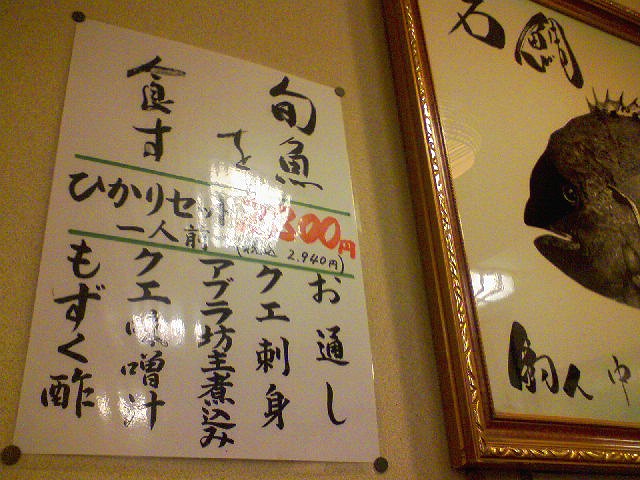 旬魚
を
食す
ひかりセット
一人前
800円
(税込 2.940円)
お通し
クエ刺身
アブラ坊主煮込み
クエ味噌汁
もずく酢
石鯛
釣人
中